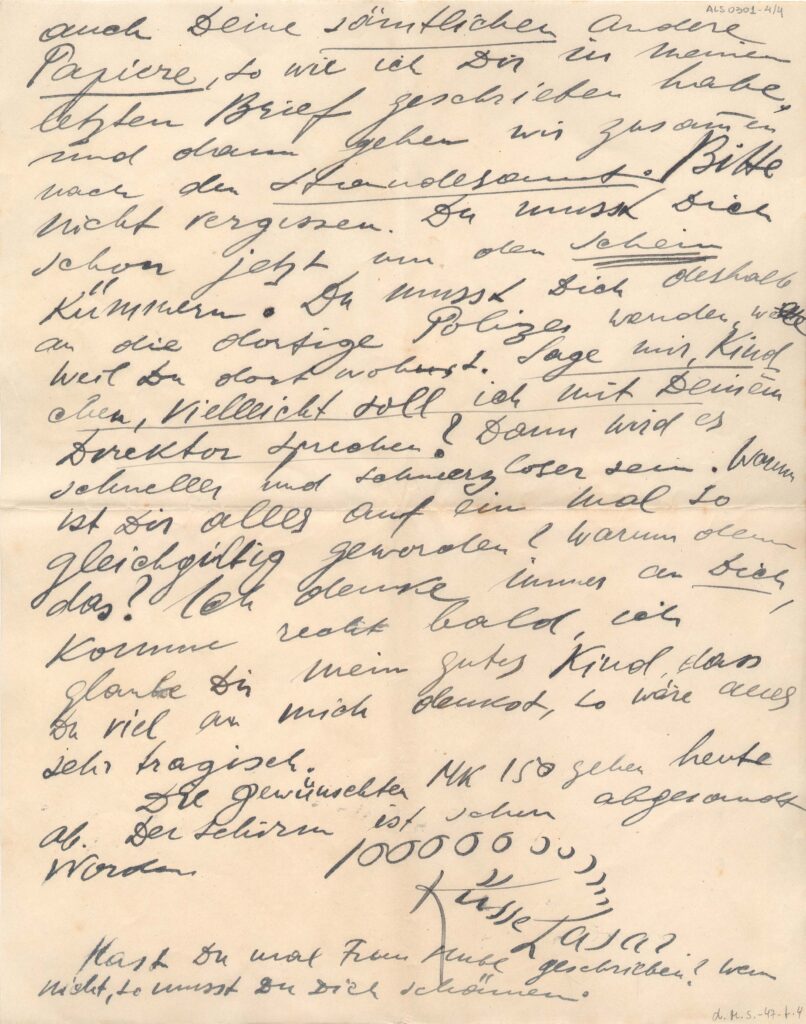 ALS0301-4/4
auch Deine sämtlichen andere
Papiere, so wie ich Dir in meinen
letzten Brief geschrieben habe,
und dann gehen wir zusamen
nach den Standesamt. Bitte
nicht vergissen. Du musst Dich
schon jetzt um den Schein
kümmern. Du musst Dich deshalb
an die dortige Polizei wenden,
weil Du dort wohnst. Sage mir, Kind
chen, vielleicht soll ich mit Deinem
Direktor sprechen? Dann wird es
schneller und schmerzloser sein. Warum
ist Dir alles auf ein mal so
gleichgiltig geworden? Warum denn
das? Ich denke immer an Dich,
komme recht bald, ich
glaube Dir mein gutes Kind, dass
Du viel an mich denkst, so wäre alles
sehr tragisch.
Die gewünschten MK 150 gehen heute
ab. Der Schirm ist schon abgesandt
worden
10000000
Küsse Lasar
Hast Du mal Frau geschrieben? Wenn
nicht, so musst Du Dich schämen.